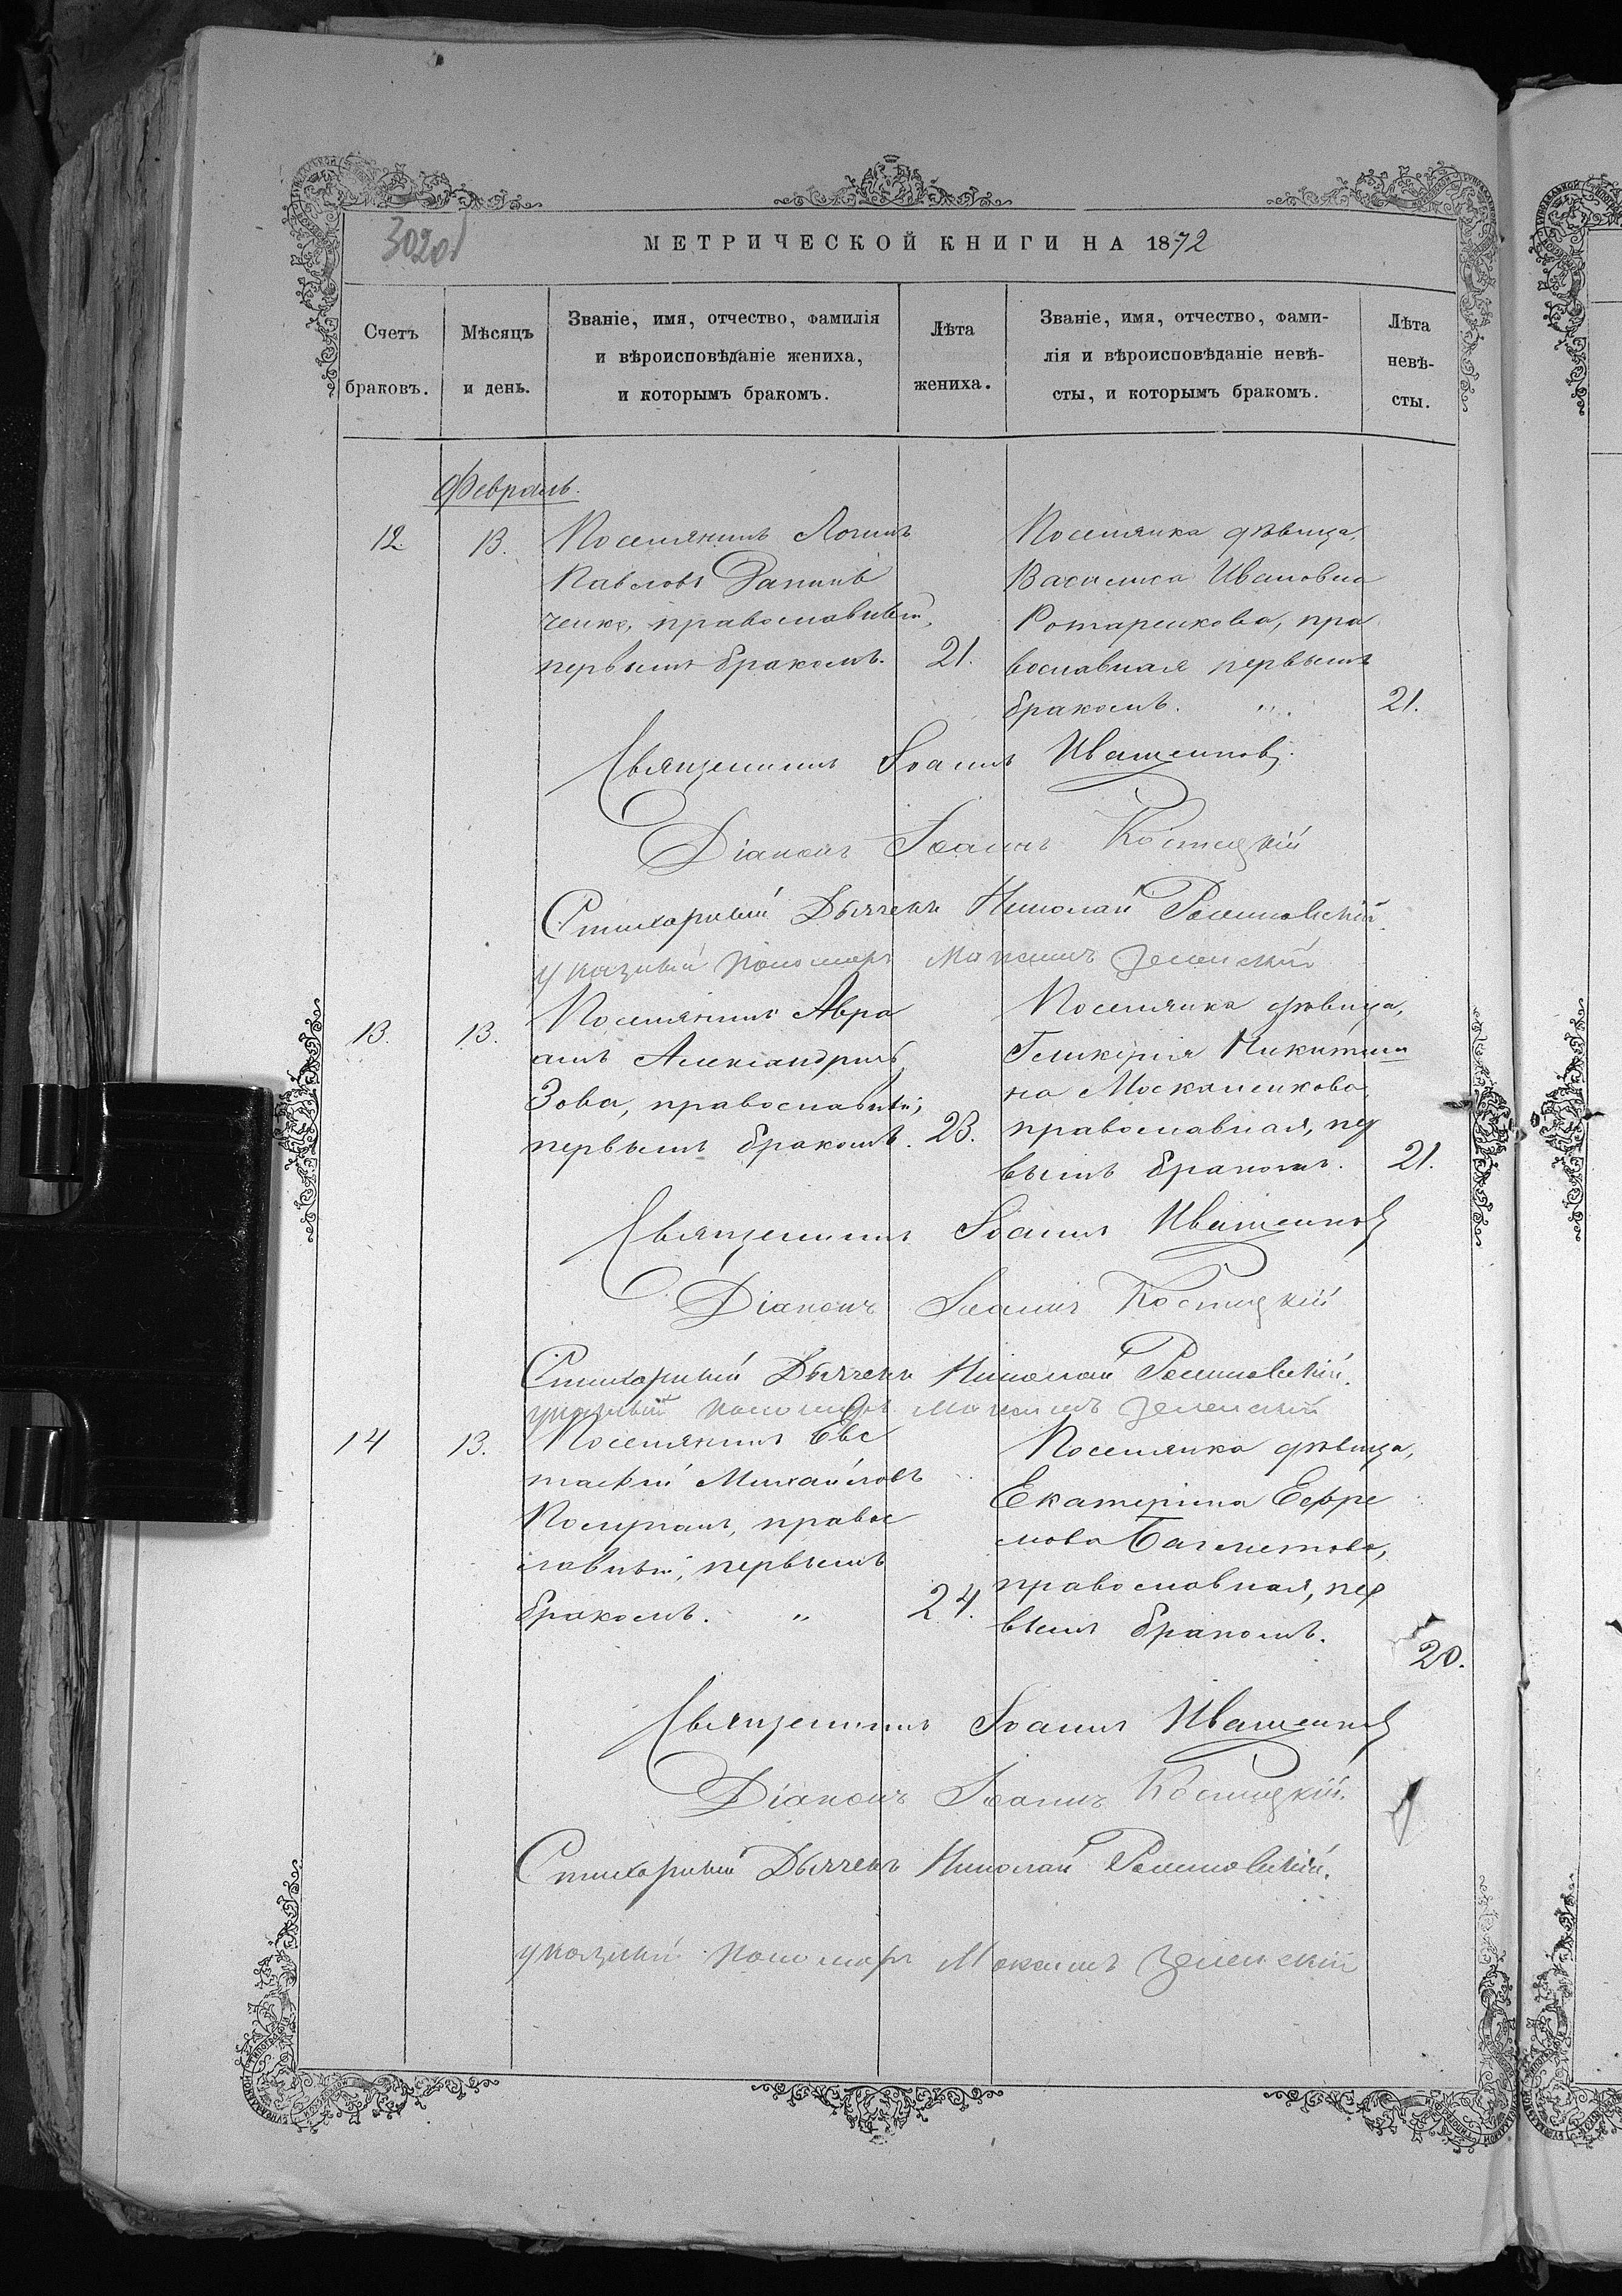 3020б
МЕТРИЧЕСКОЙ КНИГИ НА 1872
Счетъ браковъ.
Мѣсяцъ и день.
Званіе, имя, отчество, фамилія
и вѣроисповѣданіе жениха,
и которымъ бракомъ.
Лѣта жениха.
Званіе, имя, отчество, фами-
лія и вѣроисповѣданіе невѣ-
сты, и которымъ бракомъ.
Лѣта невѣ-
сты.
Февраль.
12. 13.
Поселянинъ Логинъ
Павловъ
ченко, православный,
первымъ бракомъ. 21.
Поселянка дѣвица,
Васалиса Ивановна
Ротаренкова, пра
вославная первымъ
бракомъ. „ 21.
Священникъ Іоаннъ Иващенковъ.
Діаконъ Іоаннъ Костецкій
Стихарный Дьячекъ Николай
указный пономарь Максимъ Зеленскій
13. 13.
Поселянинъ Авра
амъ Александровъ
Зова, православный,
первымъ бракомъ. 23.
Поселянка дѣвица,
Гликерія Никитина
на Москаленкова,
православная, пер
вымъ бракомъ. 21.
Священникъ Іоаннъ Иващенковъ
Діаконъ Іоаннъ Костецкій
Стихарный Дьячекъ Николай
указный пономарь Максимъ Зеленскій
14 13.
Поселянинъ Евс
тафій Михайловъ
православ
лавный, первымъ
бракомъ. „ 24.
Поселянка дѣвица,
Екатерина Ефре
мова
православная, пер
вымъ бракомъ.
20.
Священникъ Іоаннъ Иващенковъ
Діаконъ Іоаннъ Костецкій.
Стихарный Дьячекъ Николай
указный пономарь Максимъ Зеленскій